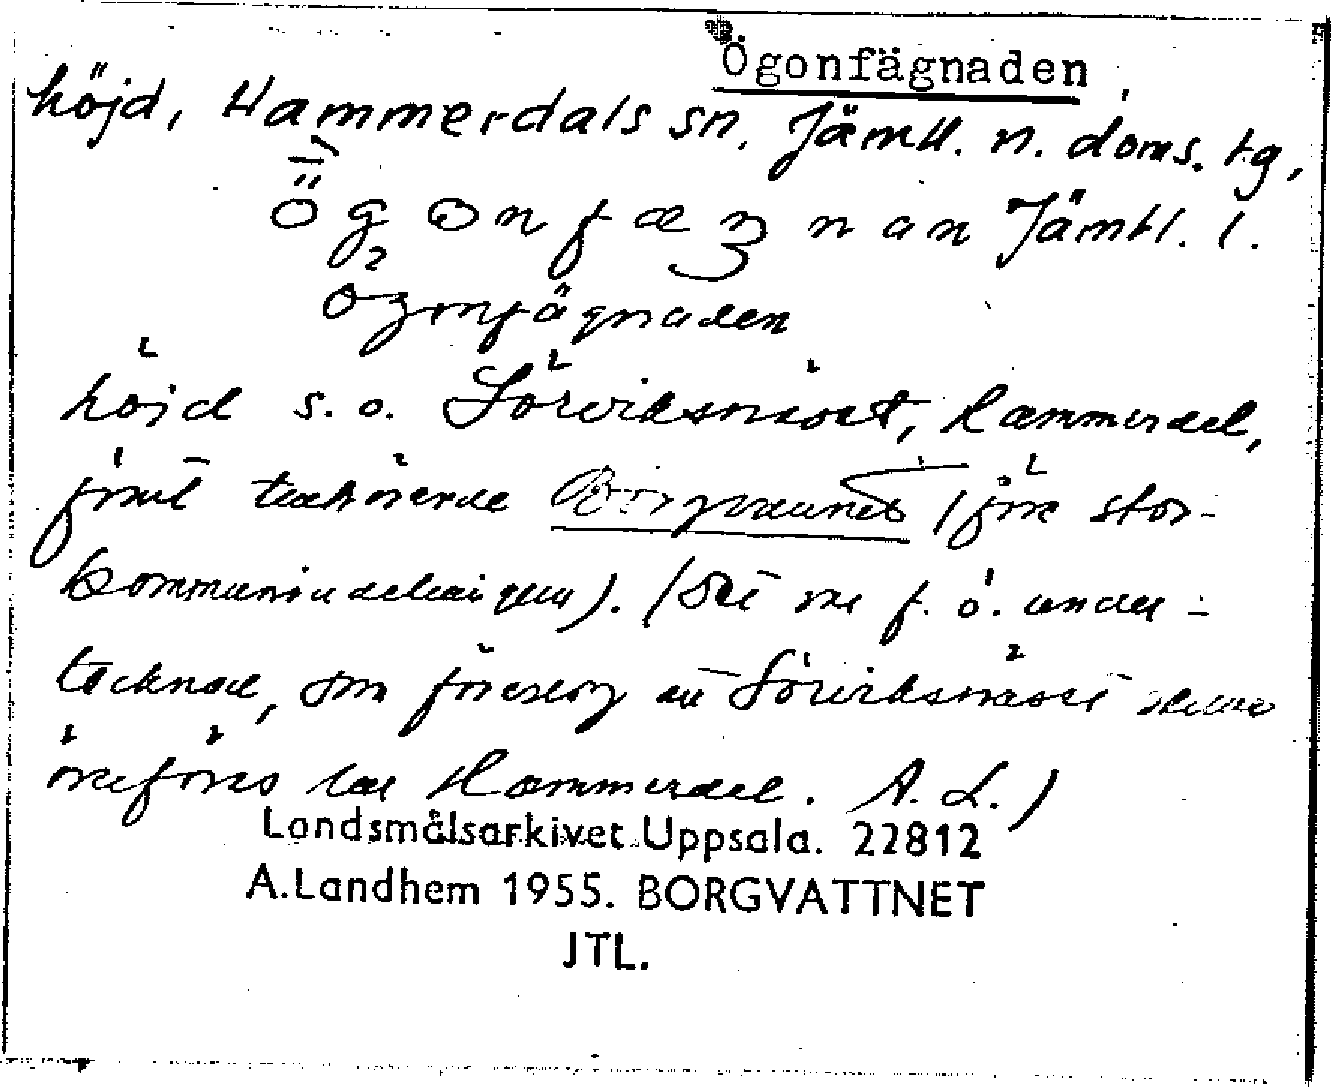 Ögonfägnaden
höjd, Hammerdals sn. Jämtl. n. doms. tg,
Jämtl. l.
Ögonfägnaden
höjd s. o. Sörviksnäset, Hammerdal,
förut tillhörande Borgvattnet (före stor-
kommunindelningen). (Det var f. ö. under-
tecknad, som föreslog att Sörviksnäset skulle
överföras till Hammerdal. A. L.)
Landsmålsarkivet Uppsala. 22812
A.Landhem 1955. BORGVATTNET
JTL.